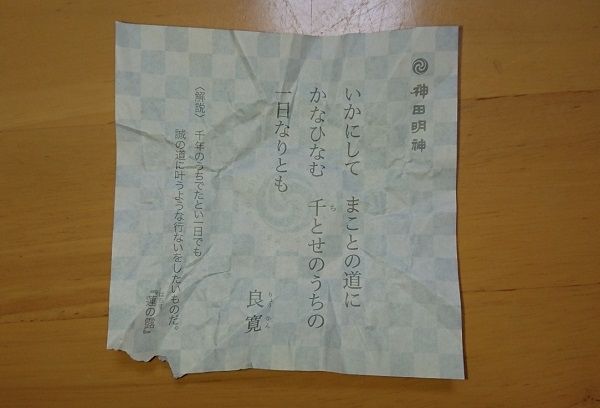 神田明神
いかにして まことの道に
かなひなむ 千とせのうちの
一日なりとも
良寛
〈解説〉 千年のうちでたとい一日でも
誠の道に叶うような行ないをしたいものだ。
『蓮の露』